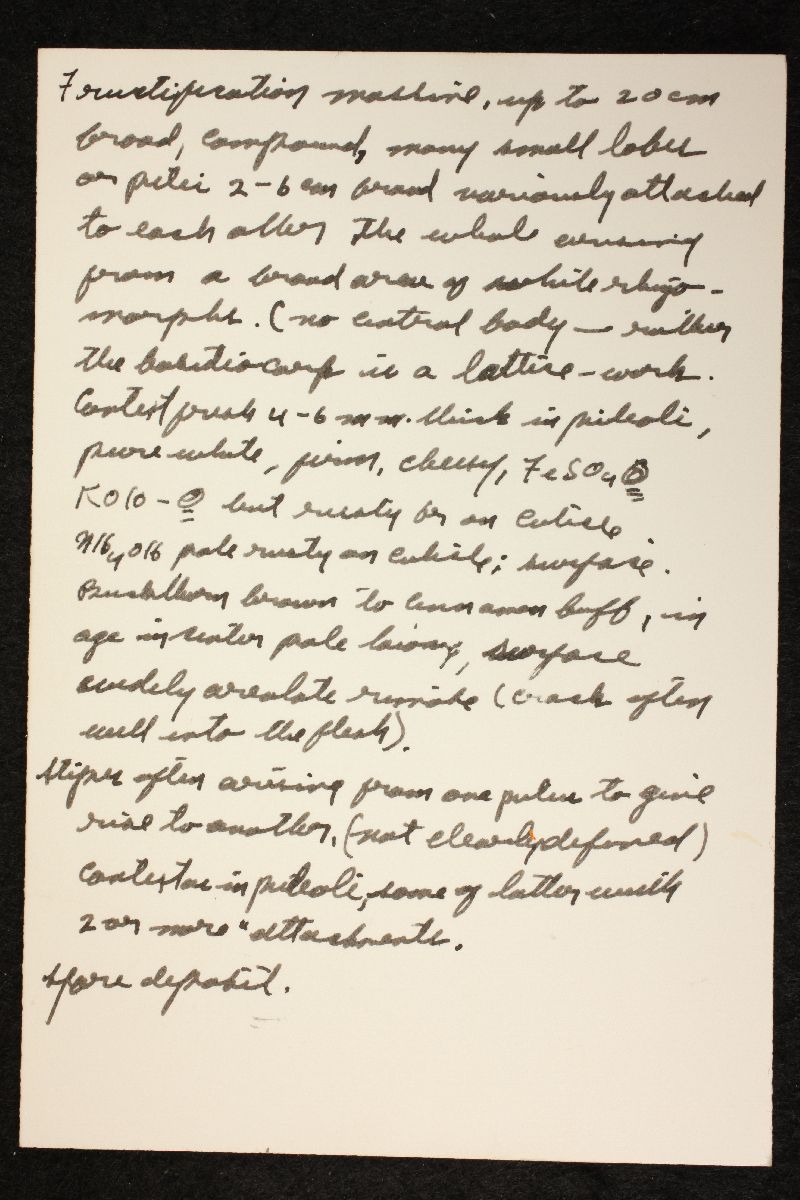 Fructification massive, up to 20 cm
broad, compound, many small lobes
or pilei 2-6 cm broad variously attached
to each other The whole arising
from a broad area of white rhizo-
morphs. (no central body — rather
the basidiocarp is a lattice-work.
Context fresh 4-6 mm. thick in pileoli,
pure white, firm, cheesy, FeSO4 O
KOH - O but rusty br on cuticle
NH4OH pale rusty on cuticle; surface.
Buckthorn brown to cinnamon buff, in
age in water pale, surface
widely areolate rimose (crack often
well into the flesh).
Stipes often arising from one pileus to give
rise to another, (not clearly defined)
context as in pileoli, some of latter with
2 or more "attachments.
Spore deposit.